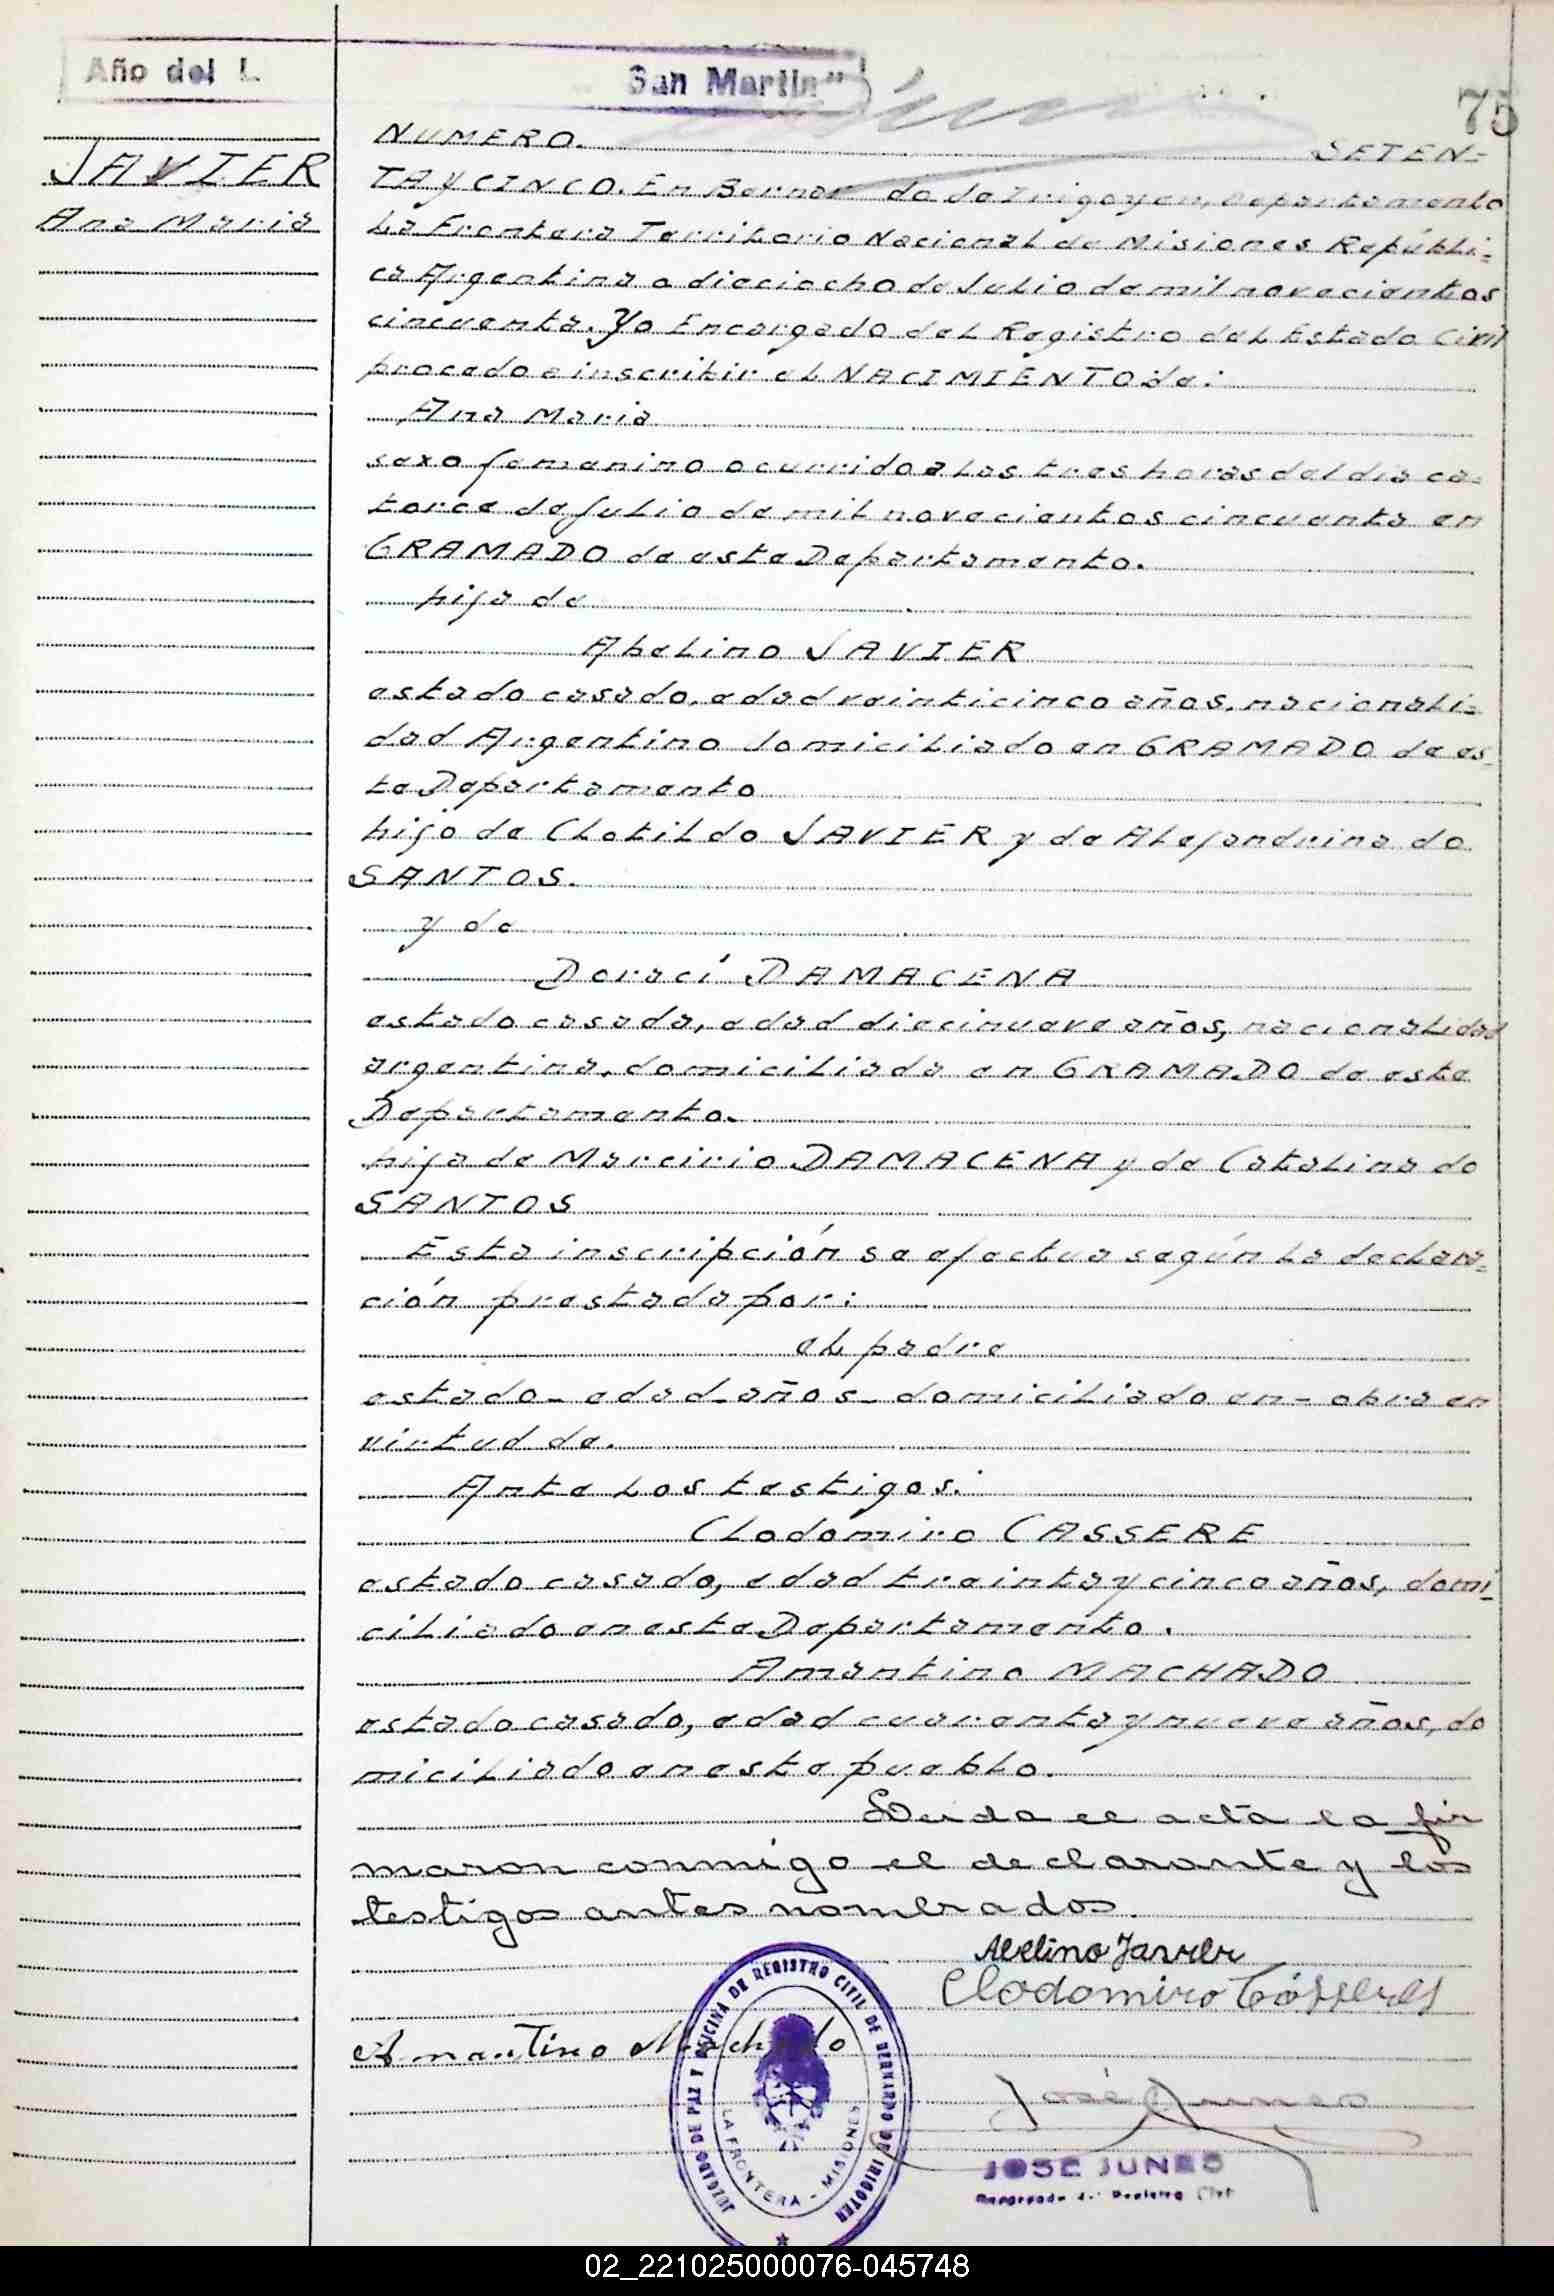 Año del L
San Martin"
75
JAVIER
Ana Maria
NUMERO. SETEN=
TA y CINCO. En Bernardo de Irigoyen, Departamento
La Frontera Territorio Nacional de Misiones Repúbli=
ca Argentina a dieciocho de Julio de mil novecientos
cincuenta. Yo Encargado del Registro del Estado Civil
procedo a inscribir el NACIMIENTO de:
Ana Maria
sexo femenino ocurrido a las tres horas del dia ca=
torce de Julio de mil novecientos cincuenta en
GRAMADO de este Departamento.
hija de
Abelino JAVIER
estado casado, edad veinticinco años, nacionali=
dad Argentino domiciliado en GRAMADO de es=
te Departamento
hijo de Clotildo JAVIER y de Alejandrina do
SANTOS.
y de
Dorací DAMACENA
estado casada, edad diecinueve años, nacionalidad
argentina, domiciliada en GRAMADO de este
Departamento.
hija de Marcirio DAMACENA y de Catalina do
SANTOS
Esta inscripción se efectua según la declara=
ción prestada por:
el padre
estado- edad- años- domiciliado en- obra en
virtud de.
Ante los testigos:
Clodomiro CASSERE
estado casado, edad treinta y cinco años, domi=
ciliado en este Departamento.
Amantino MACHADO
estado casado, edad cuarenta y nueve años, do
miciliado en este pueblo.
Leida el acta la fir
maron conmigo el declarante y los
testigos antes nombrados.
Avelino Javier
Clodomiro Cásseres
Amantino Machado
José Juneo
JUZGADO DE PAZ Y OFICINA DE REGISTRO CIVIL DE BERNARDO DE IRIGOYEN
LA FRONTERA - MISIONES
JOSE JUNEO
Encargado del Registro Civil
02_221025000076-045748